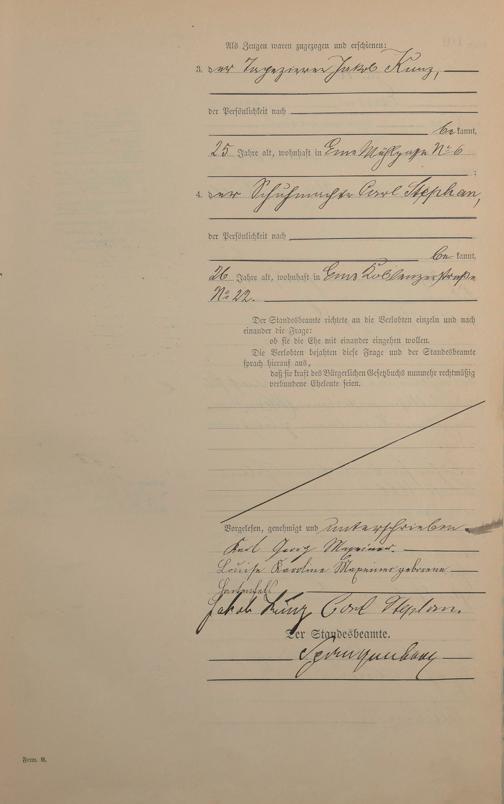 Als Zeugen waren zugezogen und erschienen:
3. der Tapezierer Jakob Kunz,
der Persönlichkeit nach
be kannt,
25 Jahre alt, wohnhaft in Ems Mühlgasse No 6
;
4. der Schuhmacher Carl Stephan,
der Persönlichkeit nach
be kannt,
26 Jahre alt, wohnhaft in Ems Koblenzerstraße
No 22.
Der Standesbeamte richtete an die Verlobten einzeln und nach
einander die Frage:
ob sie die Ehe mit einander eingehen wollen.
Die Verlobten bejahten diese Frage und der Standesbeamte
sprach hierauf aus,
daß sie kraft des Bürgerlichen Gesetzbuchs nunmehr rechtmäßig
verbundene Eheleute seien.
Vorgelesen, genehmigt und unterschrieben.
Karl Georg Maxeiner.
Louise Karoline Maxeiner geborene
Jakob Kunz Carl Stephan.
Der Standesbeamte.
Form. B.